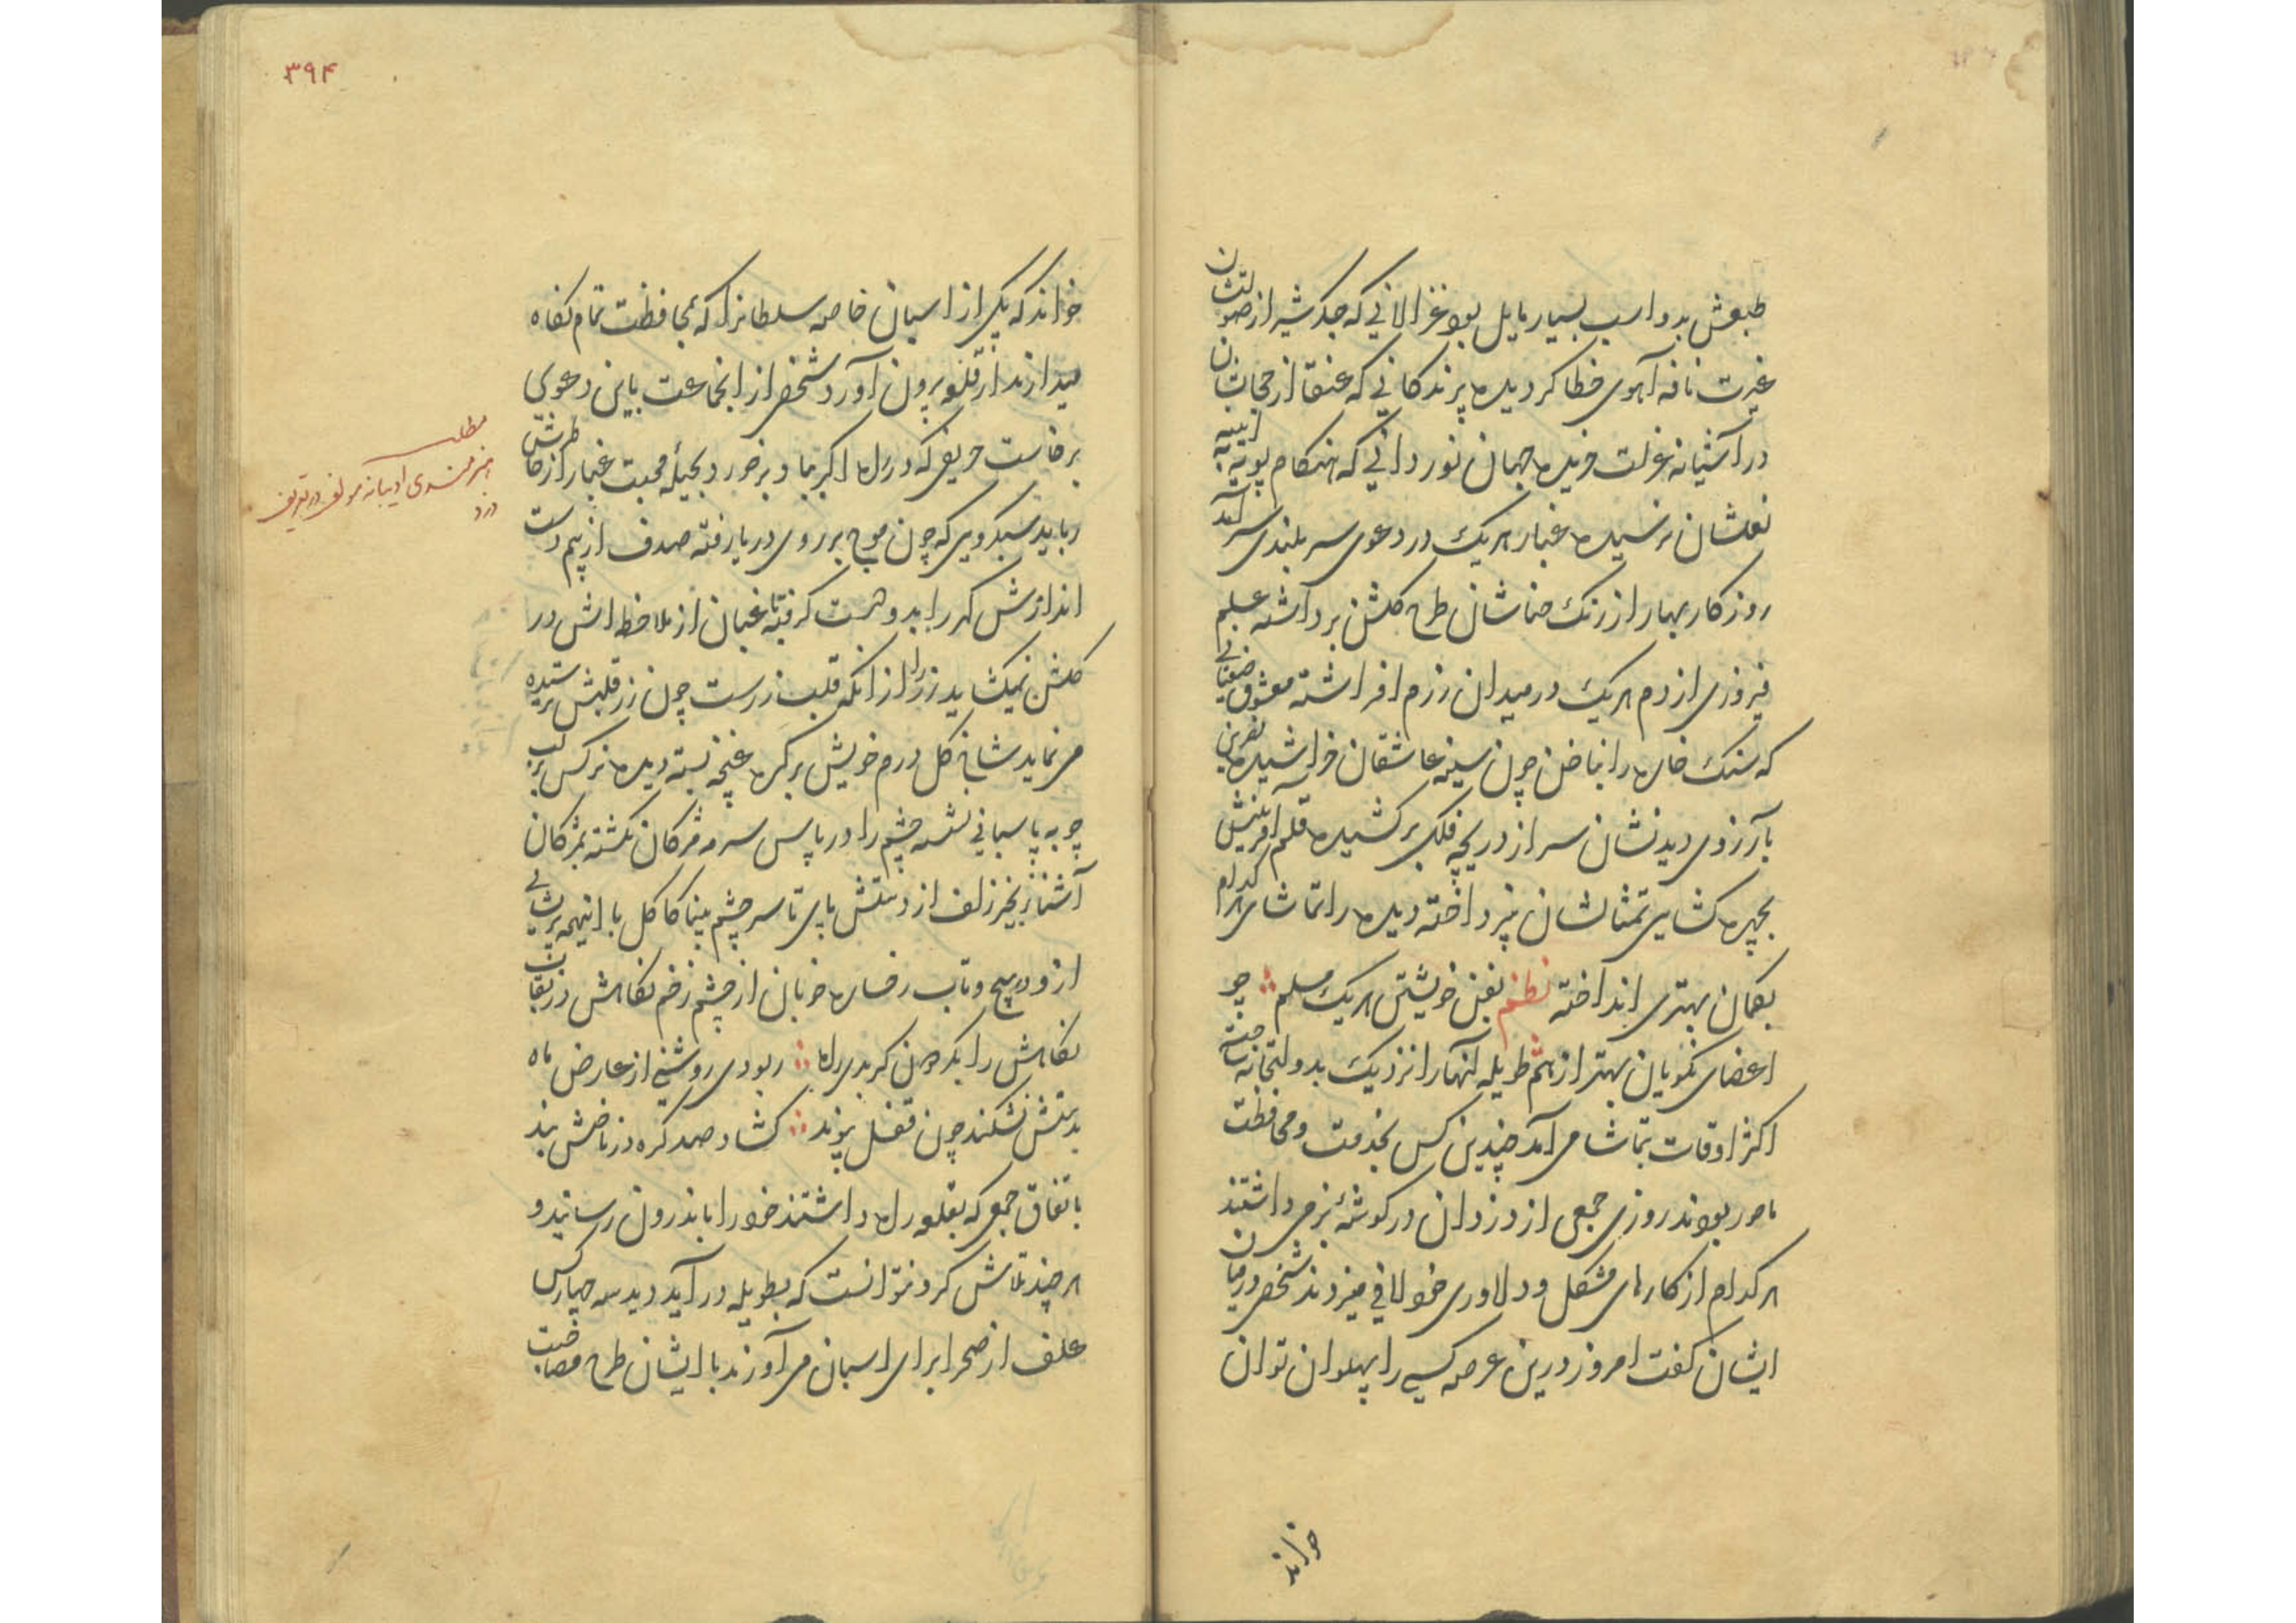 طبعش بدو اسب بسیار مایل بود غزالانی که جگر شیر از صولتشان
غیرت نافه آهوی خطا کردیده پرندکانی که عنقا از حجابشان
در آشیانه عزلت خزیده جهان نوردانی که هنکام پویه
نعلشان نرسیده غبار هریک در دعوی سر بلندی سرآمد
روزکار بهار از رنک حناشان طرح کلشن برداشته علم
فیروزی از دم هریک در میدان رزم افراشته معشوق
که سنک خاره را بناخن چون سینه عاشقان خراشیده
بآرزوی دیدنشان سر از دریچه فلک برکشیده قلم آفرینش
بچهره کشایی تمثالشان نپرداخته دیده را تماشای هرکدام
بکمان بهتری انداخته نظم بفن خویشتن هریک مسلم چو
اعضای نکویان بهتر از هم طویله آنها را نزدیک بدولتخانه ساخته
اکثر اوقات بتماشا می آمد چندین کس بخدمت و محافظت
مامور بودند روزی جمعی از دزدان در کوشهٔ بزمی داشتند
هر کدام از کارهای مشکل و دلاوری خود لافی میزدند شخصی درمیان
ایشان کفت امروز درین عرصه کسی را پهلوان توان
خواند
۳۹۴
خواند که یکی از اسبان خاصه سلطانرا که بمحافظت تمام نکاه
میدارند از قلعه بیرون آورد شخصی از انجماعت باین دعوی
برخاست حریفی که در راه اکر بماد برخورد بحیلهٔ محبت غبار از خاطرش
رباید سبکروی که چون موج بر روی دریا رفته صدف از بیم دست
اندازش کهر را بدو دست کرفته غبان از ملاحظه اش در
کلشن نمیکشاید زر را از انکه قلب زرست چون زر قلبش
می نماید شاخ کل درم خویش بر کره غنچه بسته دیده نرکس بر لب
جو به پاسبانی نشسته چشم را در پاس سرمه مژکان نکشته بمژکان
آشنا زنجیر زلف از دستش پای تا سر چشم بینا کاکل با اینهمه پریشانی
ازو در پیچ و تاب رخساره خوبان از چشم زخم نکاهش در نقاب
نکاهش را بکردون کر بدی راه ربودی روشنی از عارض ماه
بدستش نشکند چون قفل پیوند کشاد صد کره در ناخنش بند
باتفاق جمعی که بقلعه راه داشتند خود را باندرون رسانید و
هر چند تلاش کرد نتوانست که بطویله در آید دید سه چهار کس
علف از صحرا برای اسبان می آورند با ایشان طرح مصاحبت
مطلب
هنرمندی ادیبانه مولف در تعریف
دزد